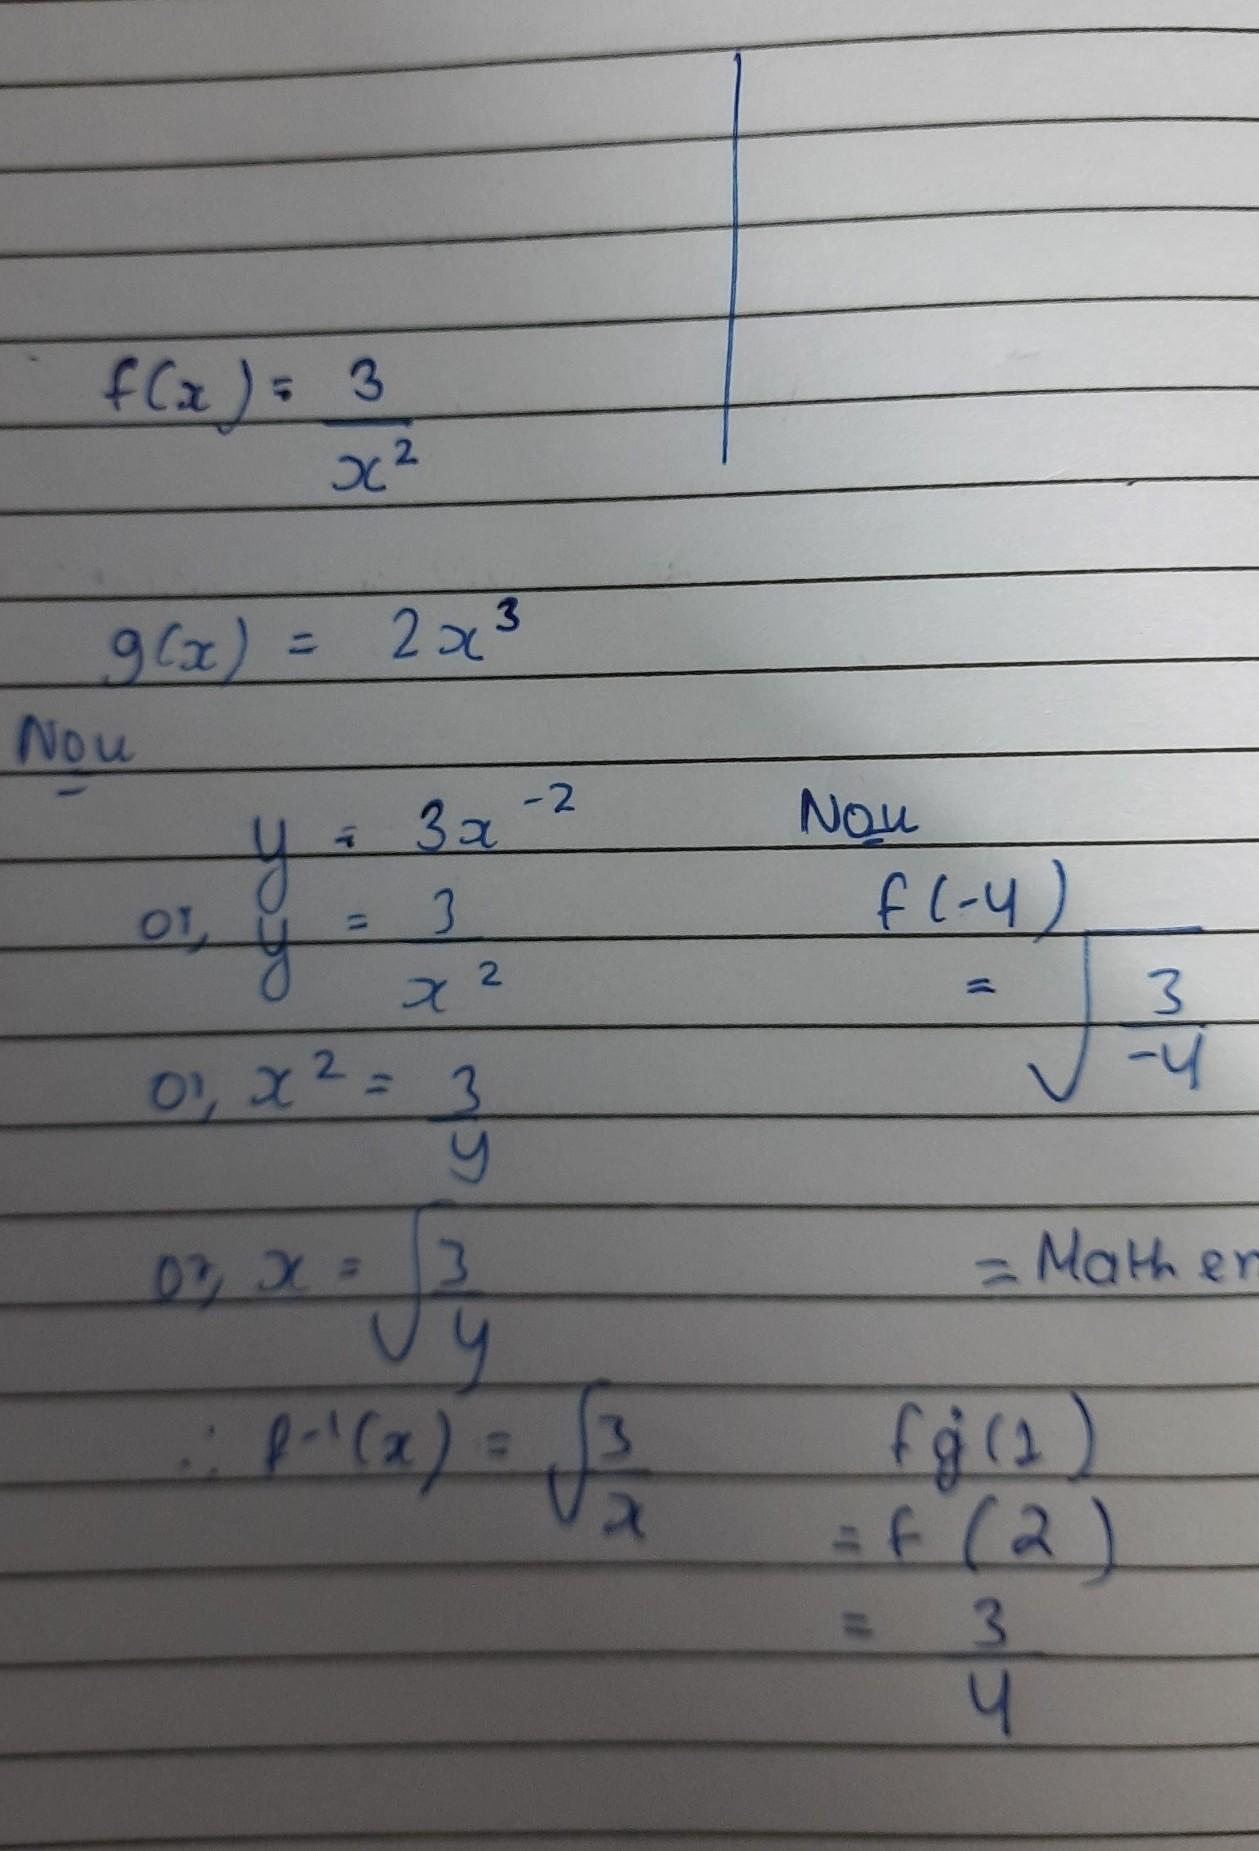 f(x) = 3/x²
g(x) = 2x³
Now
y = 3x⁻²
or, y = 3/x²
or, x² = 3/y
or, x = √(3/y)
∴ f⁻¹(x) = √(3/x)
Now
f(-4)
= √(3/-4)
= Mathem
fg(1)
= f(2)
= 3/4